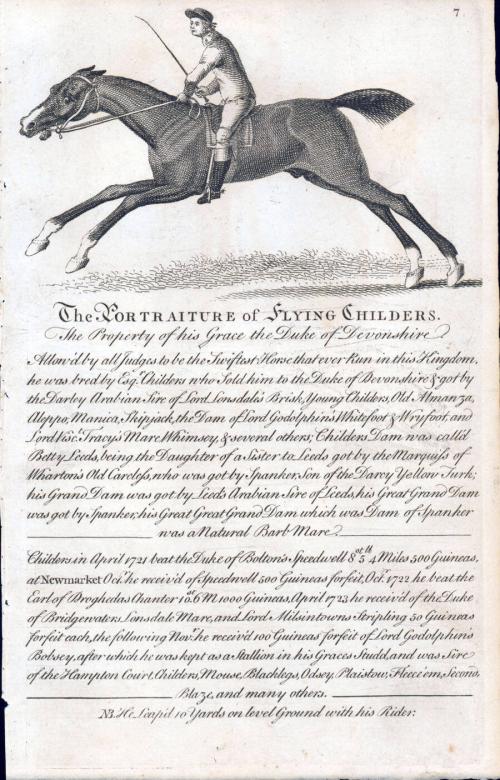 7
The PORTRAITURE of FLYING CHILDERS.
The Property of his Grace the Duke of Devonshire
Allow'd by all Judges to be the Swiftest Horse that ever Run in this Kingdom,
he was bred by Esqr. Childers who Sold him to the Duke of Devonshire & got by
the Darby Arabian Sire of Lord Lonsdale's Brisk, Young Childers, Old Almanza,
Aleppo, Manica, Skipjack, the Dam of Lord Godolphin's Whitefoot & Wryfoot, and
Lord Visc. Tracy's Mare Whimsey, & several others; Childers Dam was call'd
Betty Leeds, being the Daughter of a Sister to Leeds got by the Marquiss of
Wharton's Old Careless, who was got by Spanker, Son of the Darcy Yellow Turk;
his Grand Dam was got by Leeds Arabian Sire of Leeds, his Great Grand Dam
was got by Spanker, his Great Great Grand Dam which was Dam of Spanker
was a Natural Barb Mare.
Childers in April 1721 beat the Duke of Bolton's Speedwell 8st. 5ll 4 Miles 500 Guineas,
at Newmarket Octr. he receiv'd of Speedwell 500 Guineas forfeit, Octr. 1722 he beat the
Earl of Drogheda's Chanter 10st. 6 M. 1000 Guineas, April 1723 he receiv'd of the Duke
of Bridgewaters Lonsdale Mare, and Lord Milsintowns Stripling 50 Guineas
forfeit each, the following Nov. he receiv'd 100 Guineas forfeit of Lord Godolphin's
Bobsey, after which he was kept as a Stallion in his Graces Studd, and was Sire
of the Hampton Court, Childers, Mouse, Blacklegs, Odsey, Plaistow, Fleece'em, Second,
Blaze, and many others.
NB. He Leap'd 10 Yards on level Ground with his Rider.